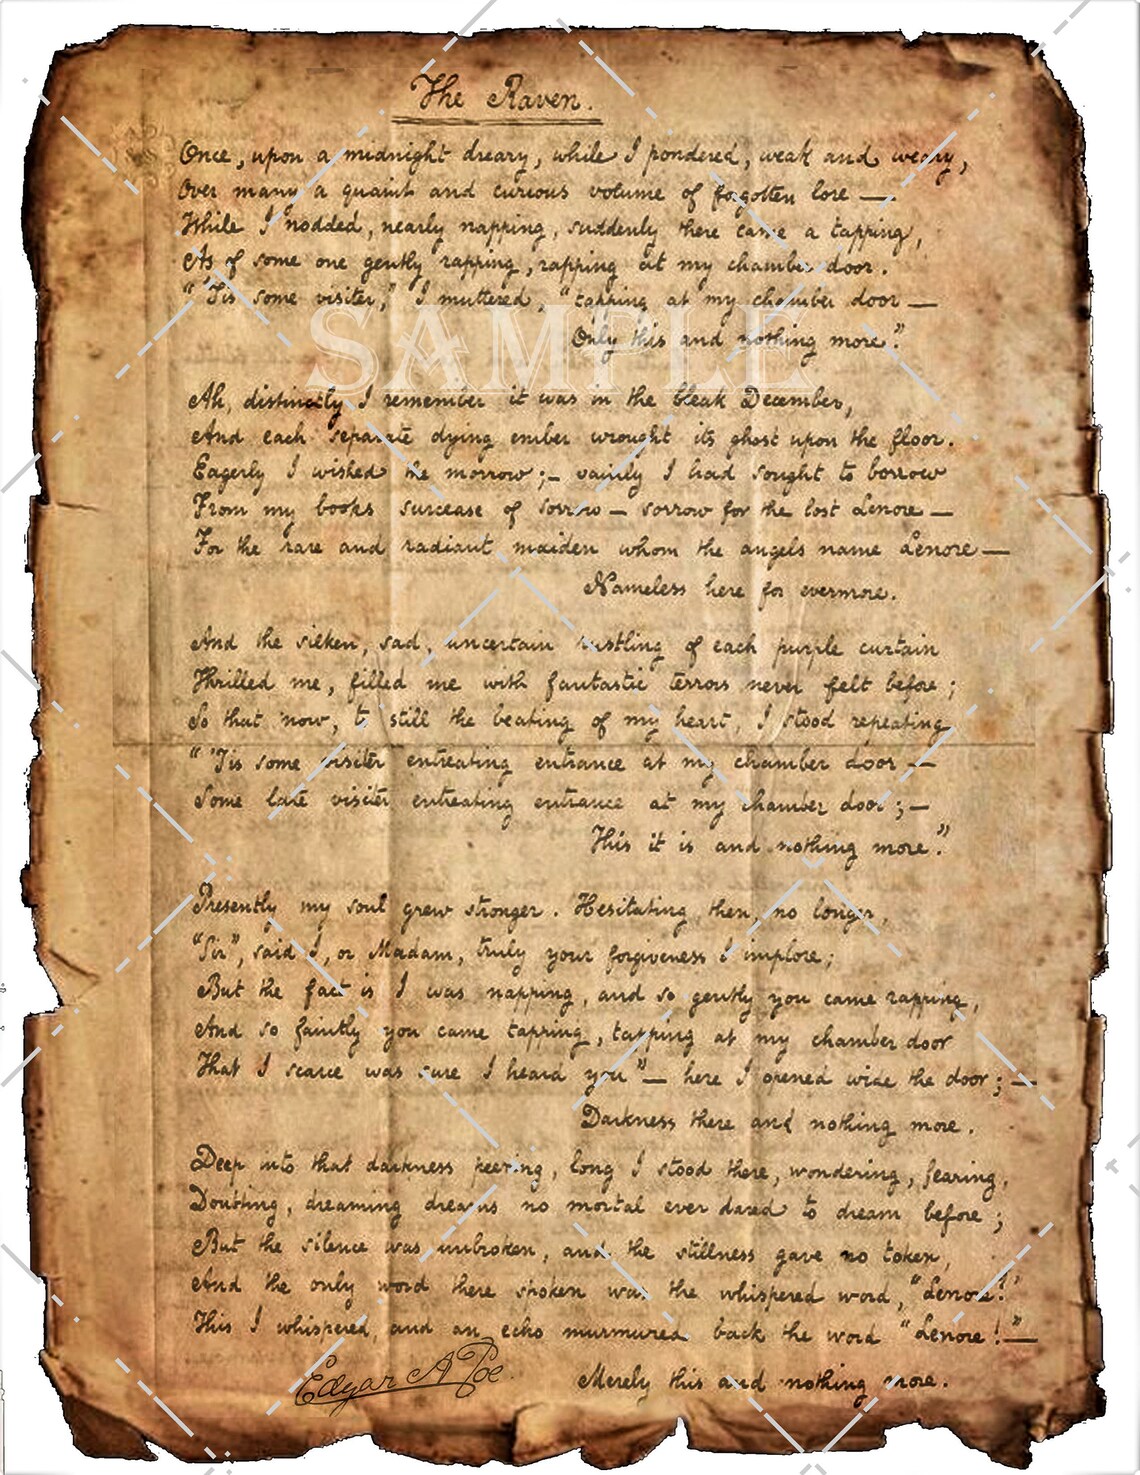 The Raven.
Once, upon a midnight dreary, while I pondered, weak and weary,
Over many a quaint and curious volume of forgotten lore —
While I nodded, nearly napping, suddenly there came a tapping,
As of some one gently rapping, rapping at my chamber door.
"'Tis some visiter," I muttered, "tapping at my chamber door —
SAMPLE
Only this and nothing more."
Ah, distinctly I remember it was in the bleak December,
And each separate dying ember wrought its ghost upon the floor.
Eagerly I wished the morrow; — vainly I had sought to borrow
From my books surcease of sorrow — sorrow for the lost Lenore —
For the rare and radiant maiden whom the angels name Lenore —
Nameless here for evermore.
And the silken, sad, uncertain rustling of each purple curtain
Thrilled me, filled me with fantastic terrors never felt before;
So that now, to still the beating of my heart, I stood repeating
"'Tis some visiter entreating entrance at my chamber door —
Some late visiter entreating entrance at my chamber door; —
This it is and nothing more."
Presently my soul grew stronger. Hesitating then, no longer,
"Sir", said I, or Madam, truly your forgiveness I implore;
But the fact is I was napping, and so gently you came rapping,
And so faintly you came tapping, tapping at my chamber door
That I scarce was sure I heard you" — here I opened wide the door; —
Darkness there and nothing more.
Deep into that darkness peering, long I stood there, wondering, fearing,
Doubting, dreaming dreams no mortal ever dared to dream before;
But the silence was unbroken, and the stillness gave no token,
And the only word there spoken was the whispered word, "Lenore!"
This I whispered, and an echo murmured back the word "Lenore!" —
Merely this and nothing more.
Edgar A Poe